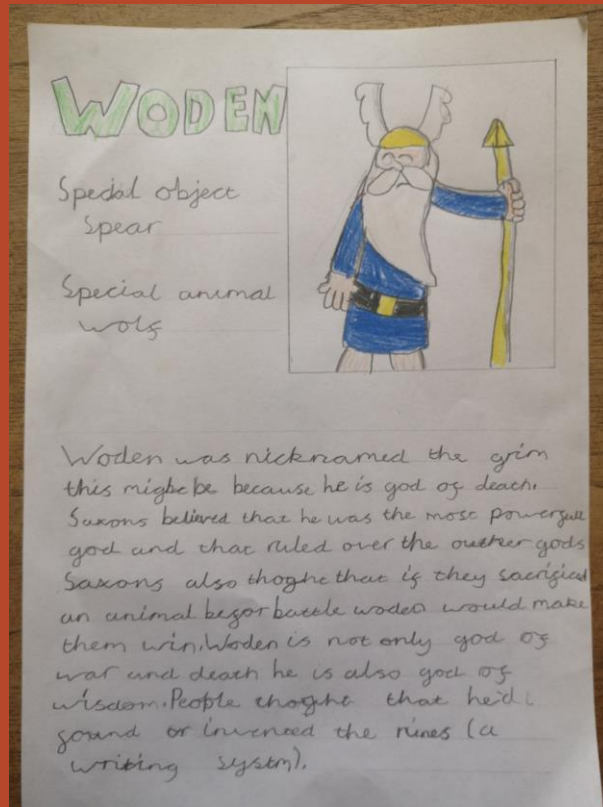 WODEN
Special object
Spear
Special animal
wolf
Woden was nicknamed the grim
this might be because he is god of death.
Saxons believed that he was the most powerfull
god and that ruled over the outher gods
Saxons also thoght that if they sacrificed
an animal befor battle woden would make
them win. Woden is not only god of
war and death he is also god of
wisdom. People thoght that he'd
found or invented the runes (a
writing systm).